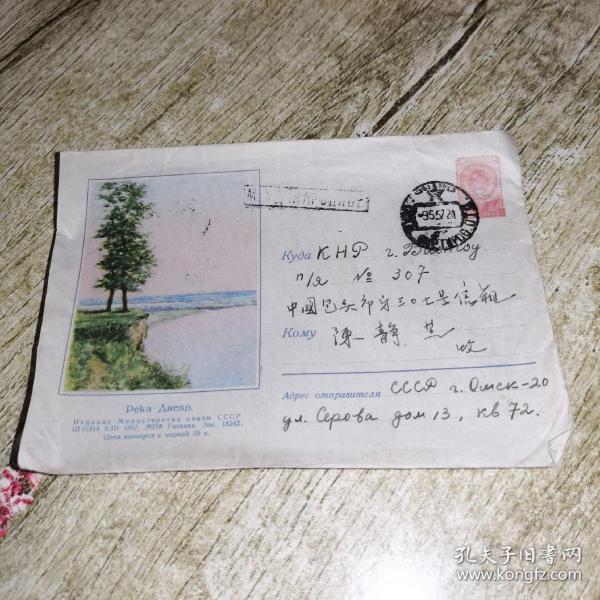 МЕЖДУНАРОДНОЕ
9 5 57 21
Куда КНР г. Баотоу
п/я № 307
中國包头市第三〇七号信箱
Кому 陳靜
收
Адрес отправителя СССР г. Омск-20
ул. Серова дом 13, кв 72.
Река Днепр.
Издание Министерства связи СССР.
Ш 01814. 8/III 1957. МПФ Гознака. Зак. 18342.
Цена конверта с маркой 50 к.
孔夫子旧书网
www.kongfz.com